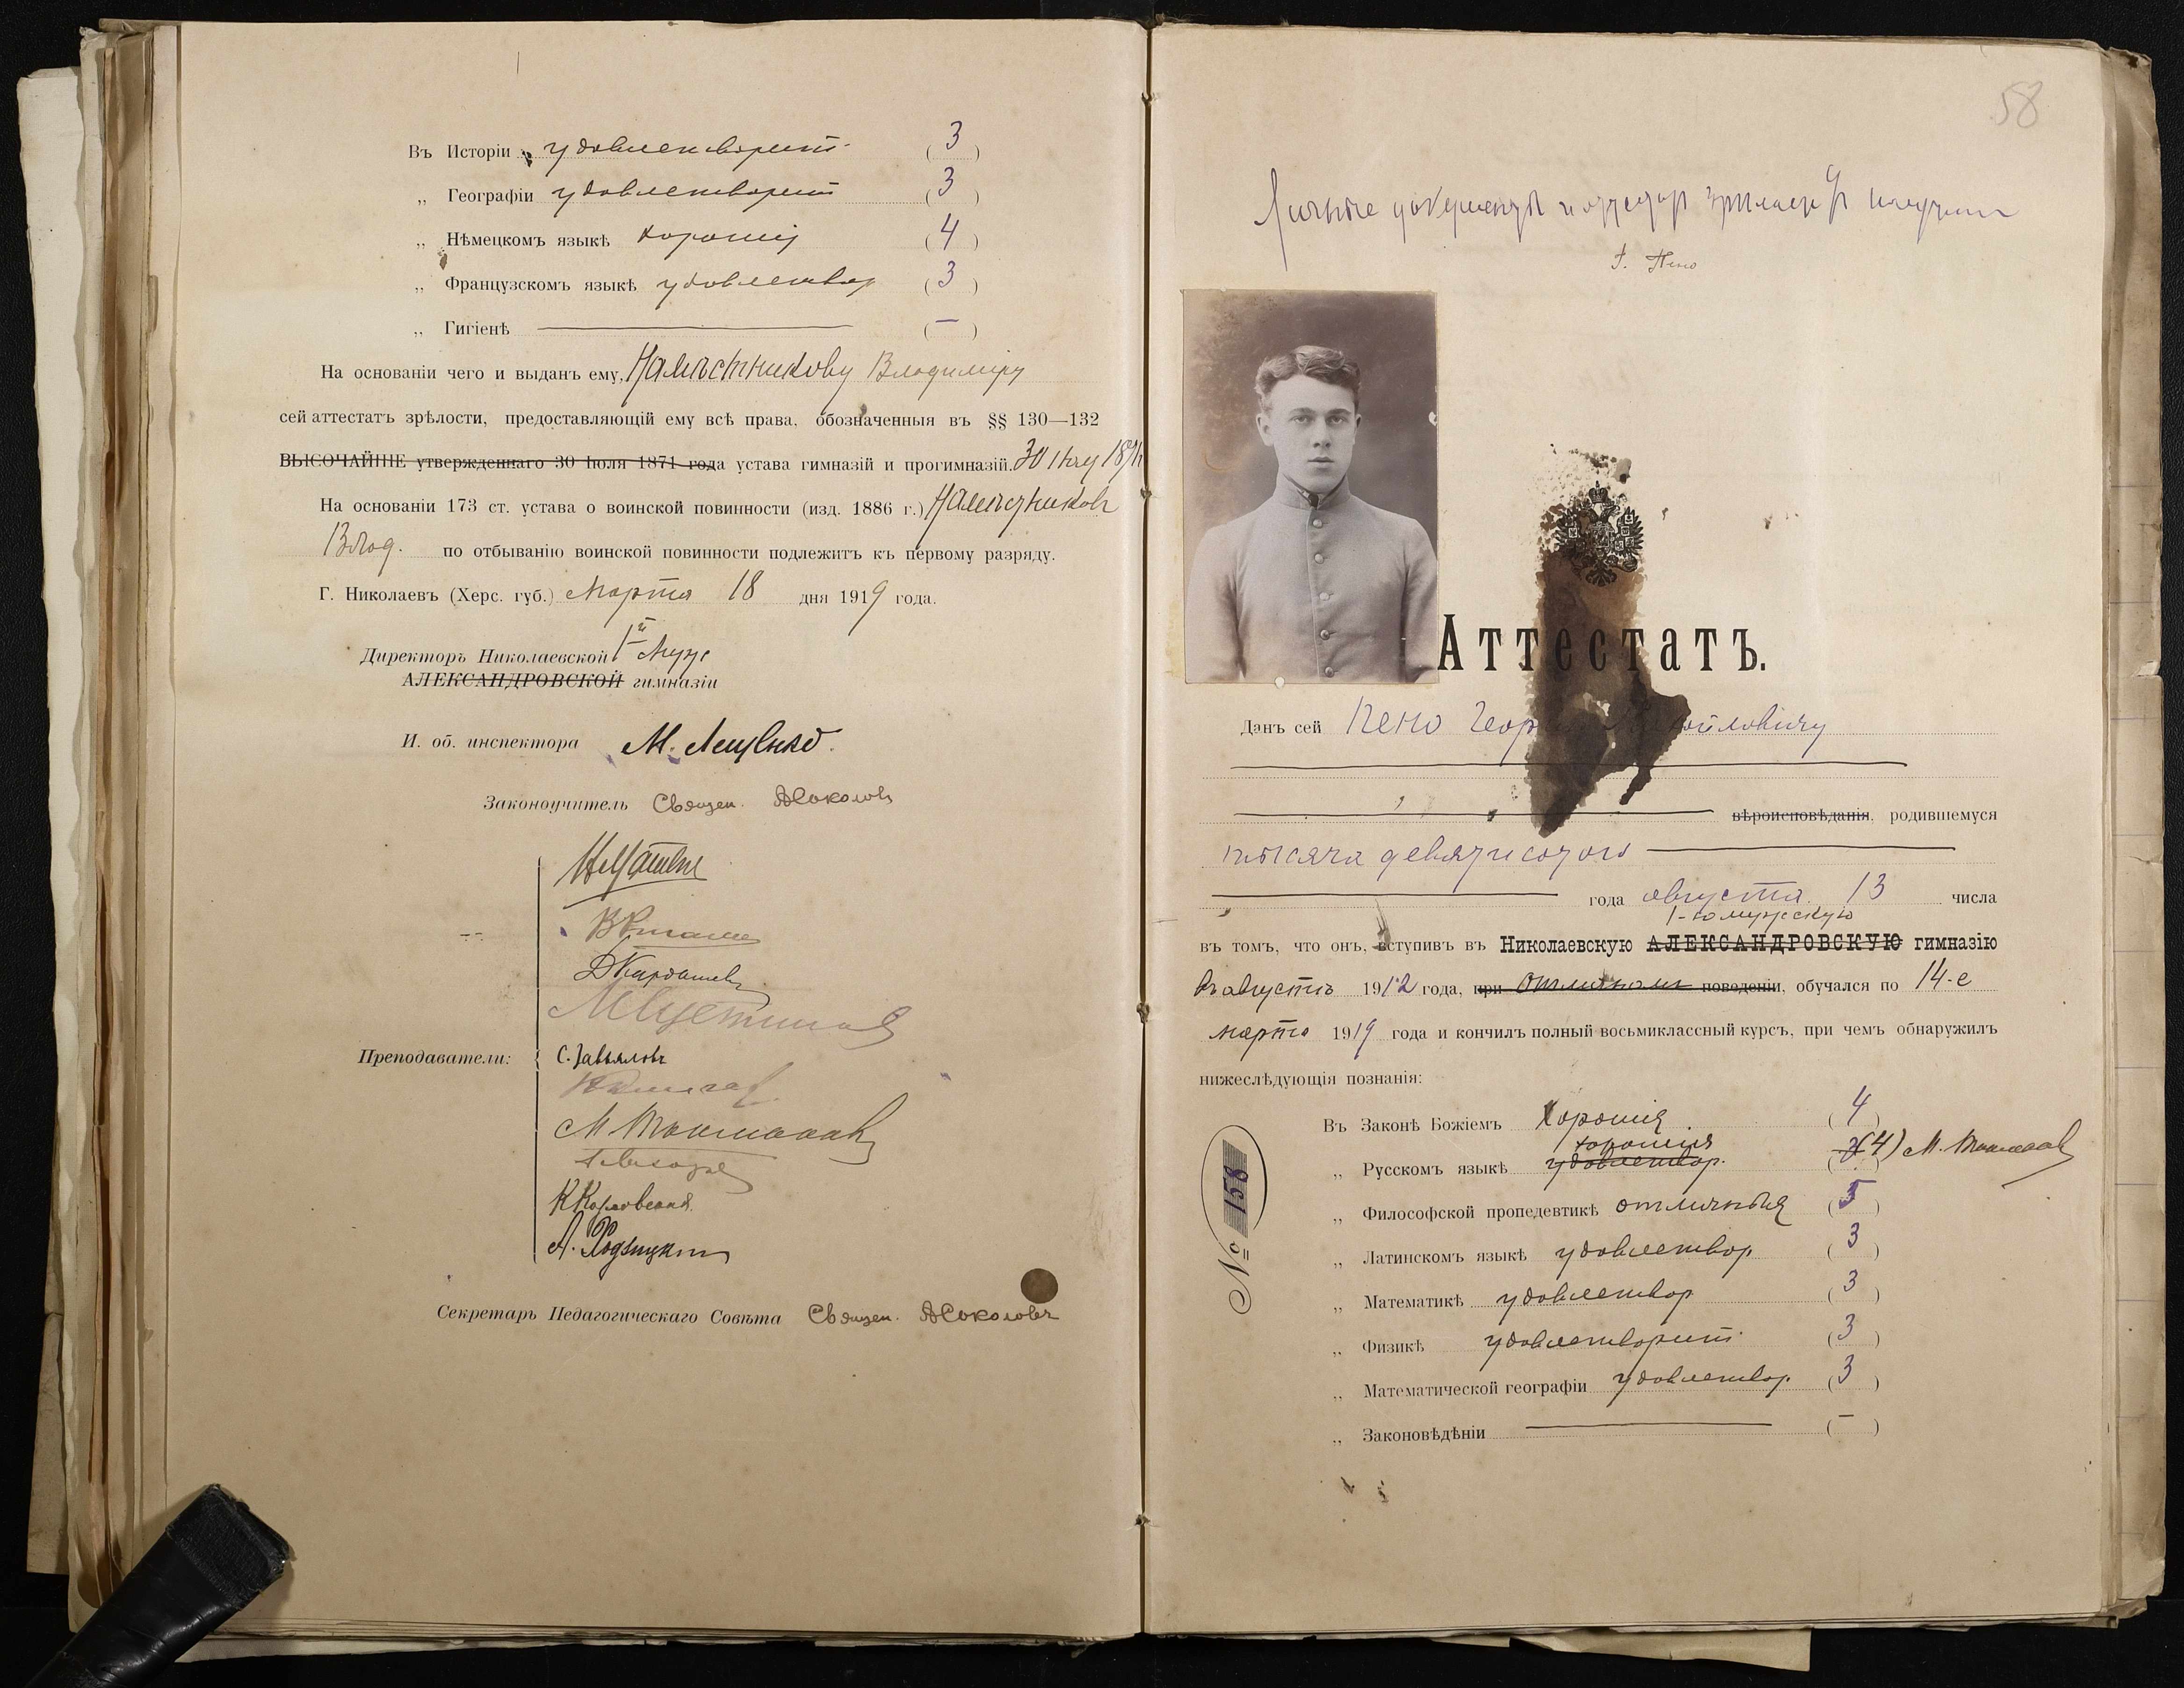 Въ Исторіи удовлетворит. (3)
„ Географіи удовлетворит (3)
„ Нѣмецкомъ языкѣ хорошія (4)
„ Французскомъ языкѣ удовлетвор (3)
„ Гигіенѣ (—)
На основаніи чего и выданъ ему, Намѣстникову Владиміру
сей аттестатъ зрѣлости, предоставляющій ему всѣ права, обозначенныя въ §§ 130—132
ВЫСОЧАЙШЕ утвержденнаго 30 Іюля 1871 года устава гимназій и прогимназій. 30 іюля 1871
На основаніи 173 ст. устава о воинской повинности (изд. 1886 г.) Намѣстниковъ
Влад. по отбыванію воинской повинности подлежитъ къ первому разряду.
Г. Николаевъ (Херс. губ.) Марта 18 дня 1919 года.
Директоръ Николаевской 1-й Муж.
АЛЕКСАНДРОВСКОЙ гимназіи
И. об. инспектора М. Лещенко.
Законоучитель Священ. АСоколовъ
Д Кардашевъ
Преподаватели: С. Завьяловъ
А. Родзицкій
Секретарь Педагогическаго Совѣта Священ. АСоколовъ
58
Личные документы и аттестат зрелости получил
Г. Кено
Аттестатъ.
Данъ сей Кено Георг
вѣроисповѣданія, родившемуся
тысяча девятисотого
года августа 13 числа
1-ю мужскую
въ томъ, что онъ, вступивъ въ Николаевскую АЛЕКСАНДРОВСКУЮ гимназію
въ августѣ 1912 года, при отличномъ поведеніи, обучался по 14-е
марта 1919 года и кончилъ полный восьмиклассный курсъ, при чемъ обнаружилъ
нижеслѣдующія познанія:
Въ Законѣ Божіемъ Хорошія (4)
хорошія
„ Русскомъ языкѣ удовлетвор. 3(4) М.
„ Философской пропедевтикѣ отличныя (5)
„ Латинскомъ языкѣ удовлетвор (3)
„ Математикѣ удовлетвор (3)
„ Физикѣ удовлетворит. (3)
„ Математической географіи удовлетвор. (3)
„ Законовѣдѣніи (—)
№ 158